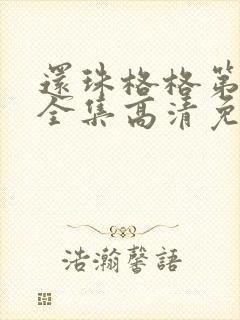 還珠格格第
全集高清免
浩瀚馨語